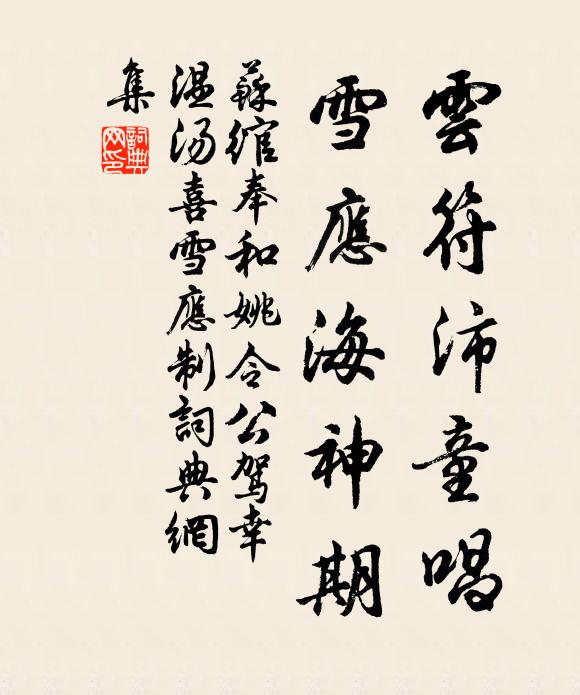 雲符沛童唱
雪應海神期
蘇綰奉和姚令公駕幸
温汤喜雪應制詞典網
集
詞典
网印